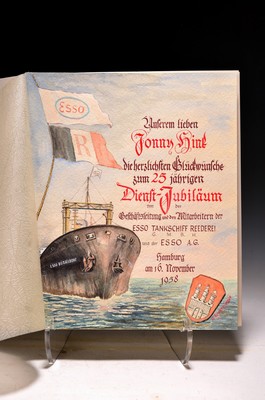 ESSO
R
Unserem lieben
Jonny Hint
die herzlichsten Glückwünsche
zum 25 jährigen
Dienst-Jubiläum
von der
Geschäftsleitung und den Mitarbeitern der
ESSO TANKSCHIFF REEDEREI
G.M.B.H.
und der ESSO A.G.
Hamburg
am 16. November
1958
ESSO